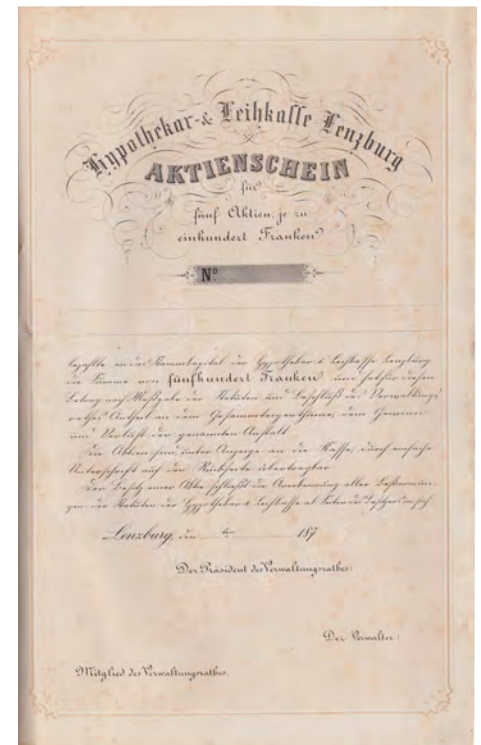 Hypothekar- & Leihkasse Lenzburg
AKTIENSCHEIN
für
fünf Aktien, je zu
einhundert Franken
No.
bezahlte an das Stammkapital der Hypothekar & Leihkasse Lenzburg
die Summe von fünfhundert Franken und hat für diesen
Betrag nach Maßgabe der Statuten und Beschluß des Verwaltungs
rathes Antheil an dem Gesammteigenthume, dem Gewinn
und Verlust der genannten Anstalt
Die Aktien sind, unter Anzeige an die Kasse, durch einfache
Unterschrift auf der Rückseite übertragbar
Der Besitz einer Aktie schließt die Anerkennung aller Bestimmun-
gen der Statuten der Hypothekar & Leihkasse als Seiten des Besitzers in sich
Lenzburg, den ten 187
Der Präsident des Verwaltungsrathes:
Der Verwalter:
Mitglied des Verwaltungsrathes: